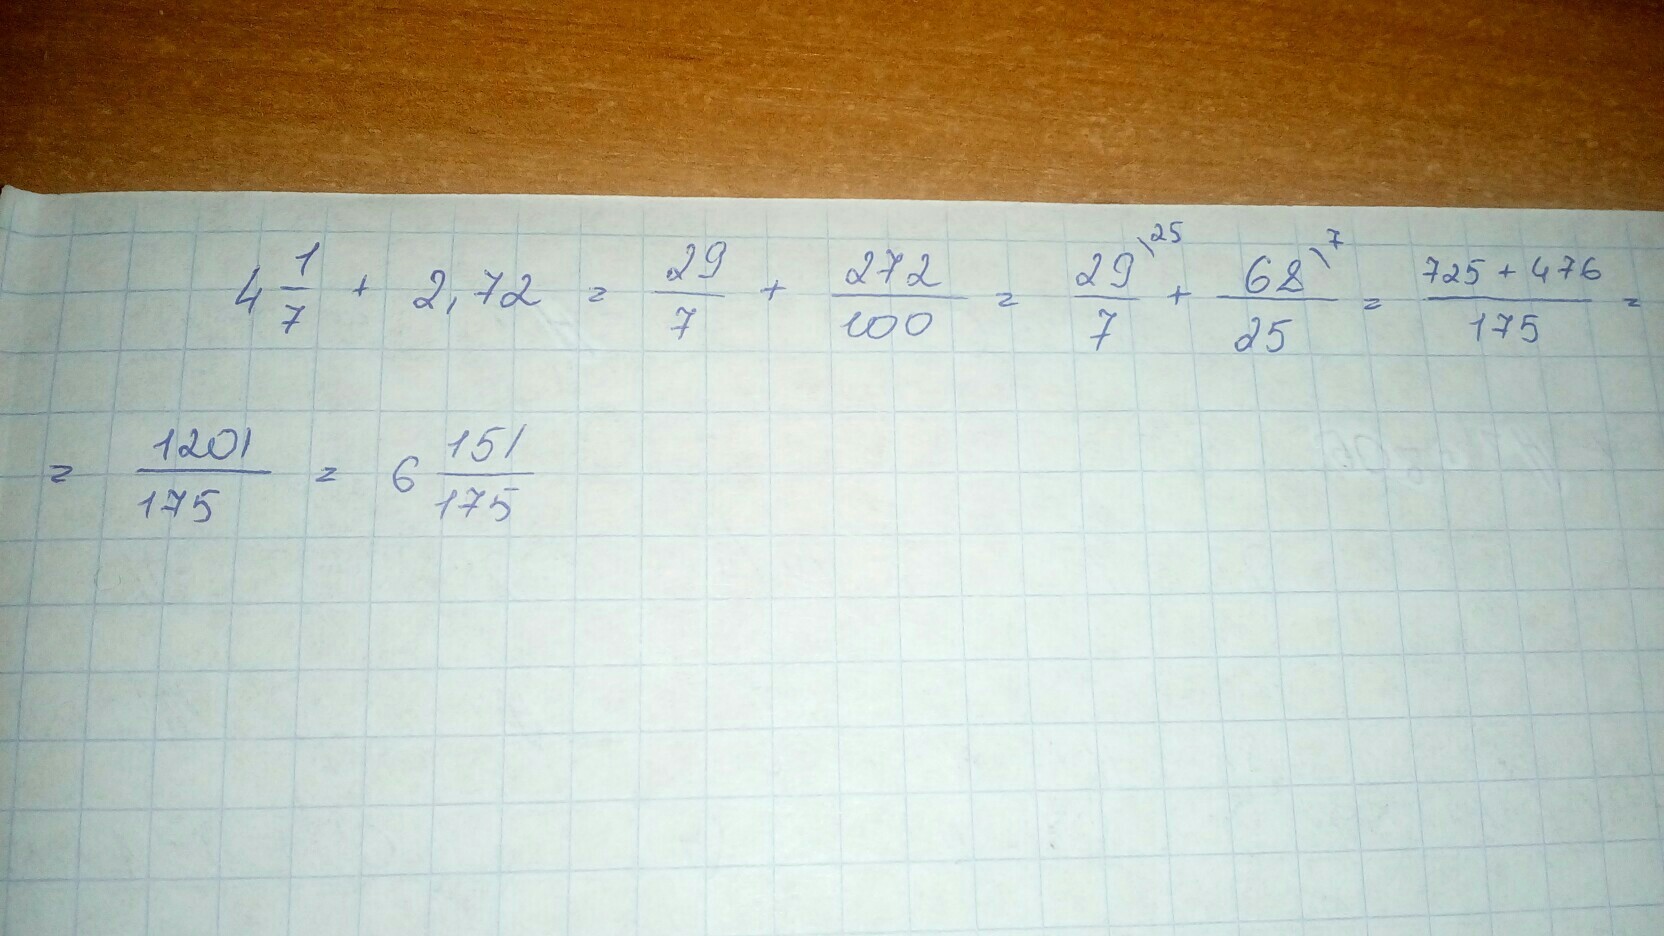 4 1/7 + 2,72 = 29/7 + 272/100 = 29\25/7 + 68\7/25 = 725 + 476/175 =
= 1201/175 = 6 151/175